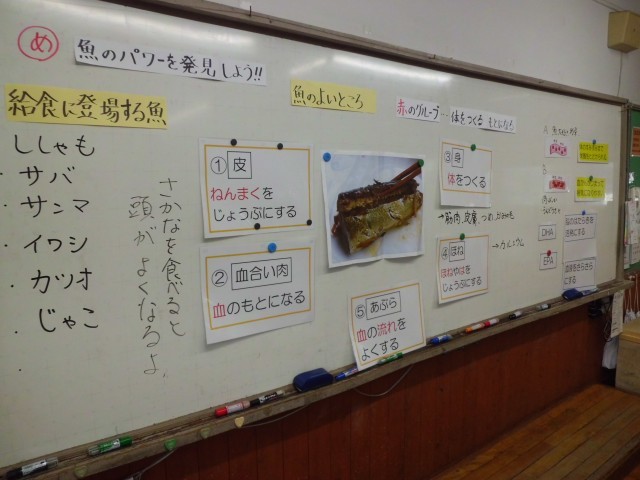 め
魚のパワーを発見しよう!!
給食に登場する魚
ししゃも
サバ
サンマ
イワシ
カツオ
じゃこ
さかなを食べると
頭がよくなるよ
魚のよいところ
赤のグループ…体をつくる もとになる
①皮
ねんまくを
じょうぶにする
②血合い肉
血のもとになる
③身
体をつくる
→筋肉、皮膚、つめ、かみの毛
④ほね
ほねやはを
じょうぶにする
→カルシウム
⑤あぶら
血の流れを
よくする
DHA
EPA